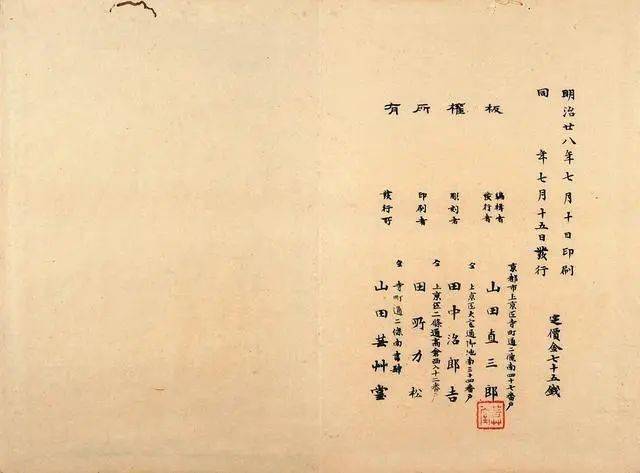 明治廿八年七月十日印刷
同　年七月十五日發行
定價金七十五錢
板權所有
編輯者
發行者
京都市上京区寺町通二條南四十七番戸
山田直三郎
彫刻者
仝 上京区大宮通御池南三十四番戸
田中治郎吉
印刷者
仝 上京区二條通高倉西入十二番戸
田野力松
發行所
仝 寺町通二條南書肆
山田芸艸堂